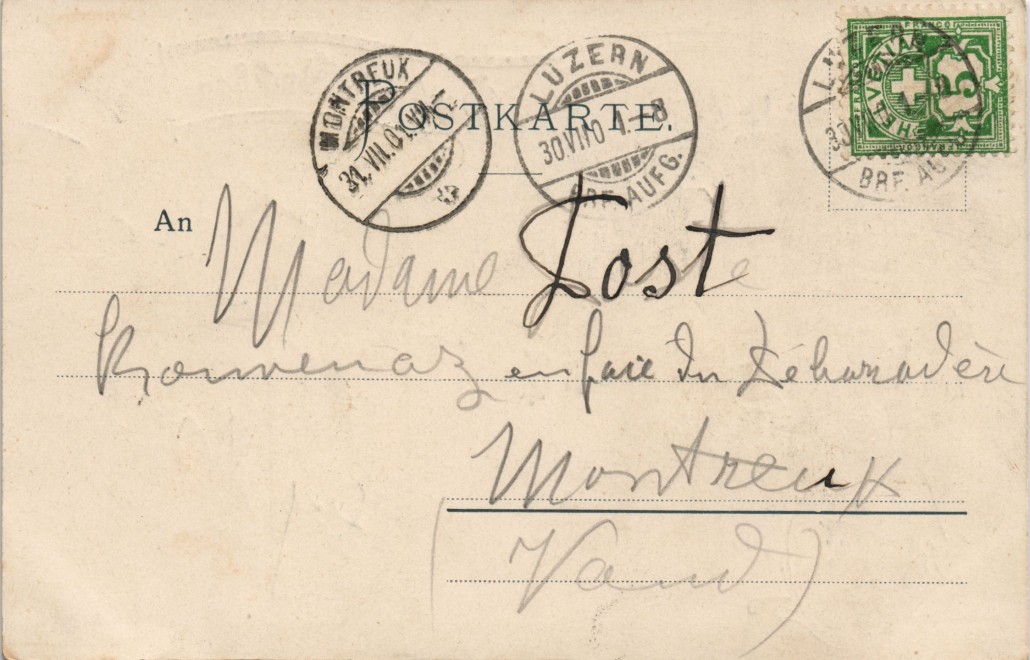 POSTKARTE.
MONTREUX
31.VII.01.VII-
LUZERN
30.VII.01.-8
BRF. AUFG.
LUZERN
30.VII.01.-8
BRF. AUFG.
FRANCO
HELVETIA
5
An
Madame Jost
Rouvenaz en face du Débarcadère
Montreux
(Vaud)